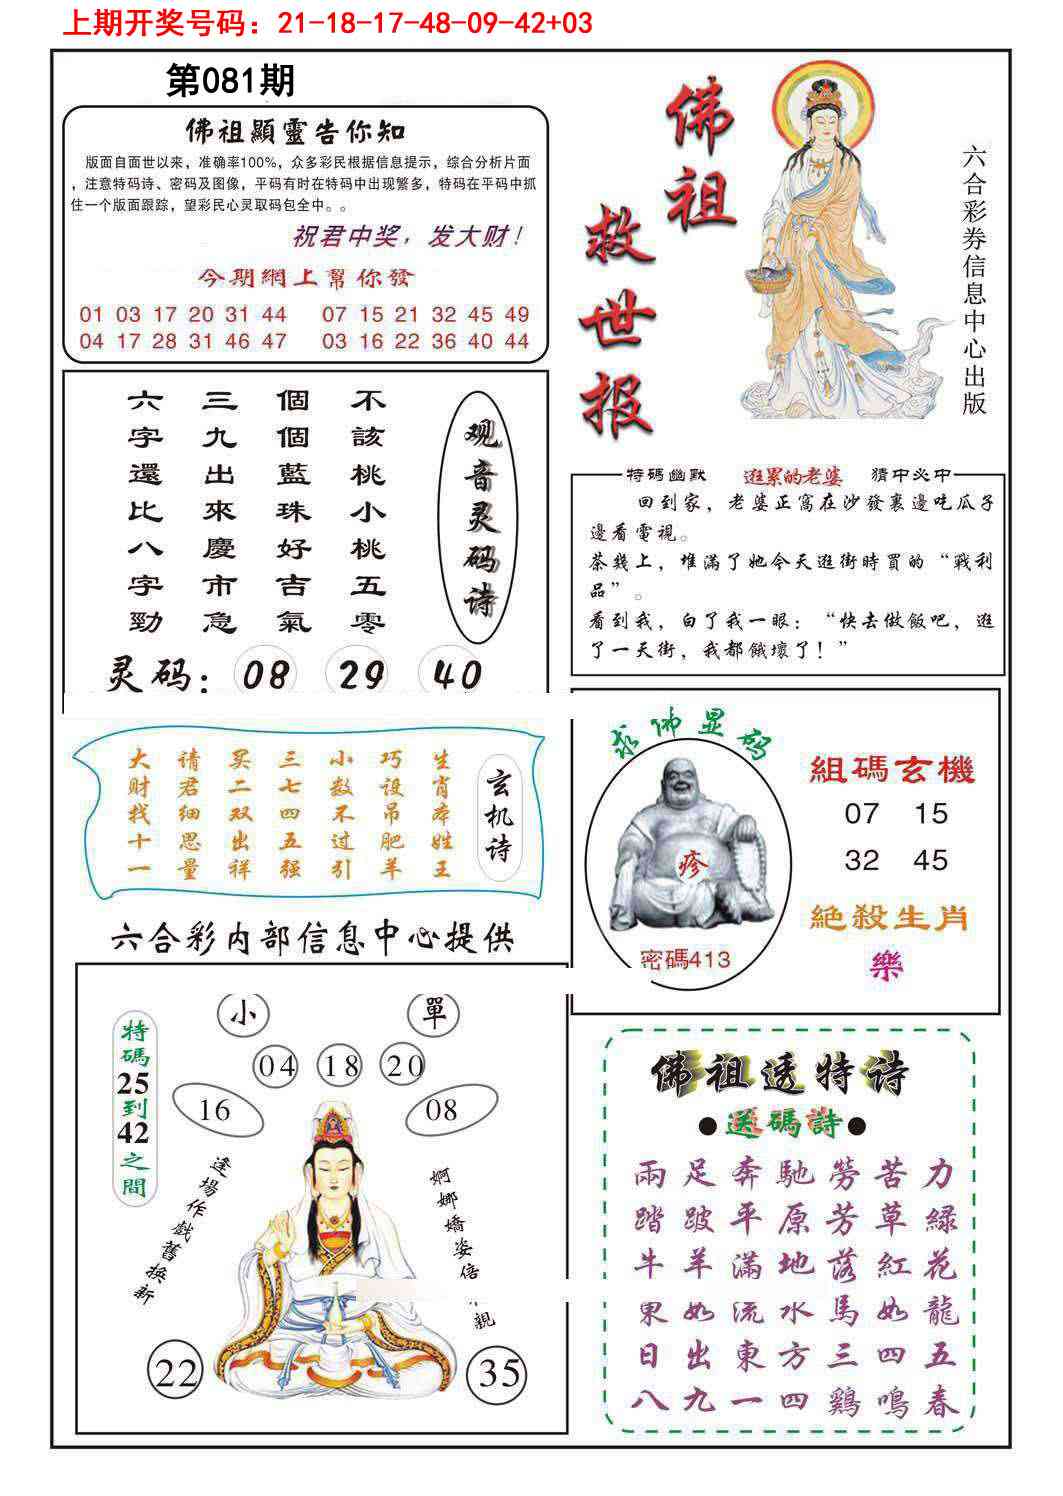 上期开奖号码：21-18-17-48-09-42+03
第081期
佛祖顯靈告你知
版面自面世以来，准确率100%，众多彩民根据信息提示，综合分析片面
，注意特码诗、密码及图像，平码有时在特码中出现繁多，特码在平码中抓
住一个版面跟踪，望彩民心灵取码包全中。。
祝君中奖，发大财！
今期網上幫你發
01 03 17 20 31 44 07 15 21 32 45 49
04 17 28 31 46 47 03 16 22 36 40 44
佛祖救世报
六合彩券信息中心出版
观音灵码诗
不該桃小桃五零
個個藍珠好吉氣
三九出來慶市急
六字還比八字勁
灵码：08 29 40
特碼幽默 逛累的老婆 猜中必中
回到家，老婆正窩在沙發裏邊吃瓜子
邊看電視。
茶幾上，堆滿了她今天逛街時買的“戰利
品”。
看到我，白了我一眼：“快去做飯吧，逛
了一天街，我都餓壞了！”
玄机诗
生肖本姓王
巧设吊肥羊
小数不过引
三七四五强
买二双出祥
请君细思量
大财找十一
求佛显码
疹
密碼413
組碼玄機
07 15
32 45
絕殺生肖
樂
六合彩内部信息中心提供
特碼25到42之間
小 單
04 18 20
16 08
逢場作戲舊换新
婀娜嬌姿倍
親
22 35
佛祖透特诗
●送碼詩●
兩足奔馳勞苦力
踏跛平原芳草緑
牛羊滿地落紅花
果如流水馬如龍
日出東方三四五
八九一四鷄鳴春